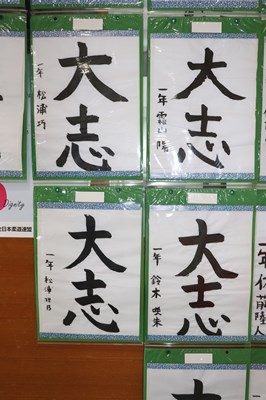 大志
一年 松浦 巧
大志
一年 霜山 陽
Dignity
全日本柔道連盟
大志
一年
大志
一年 鈴木 咲朱
年 佐藤陸人
大
大